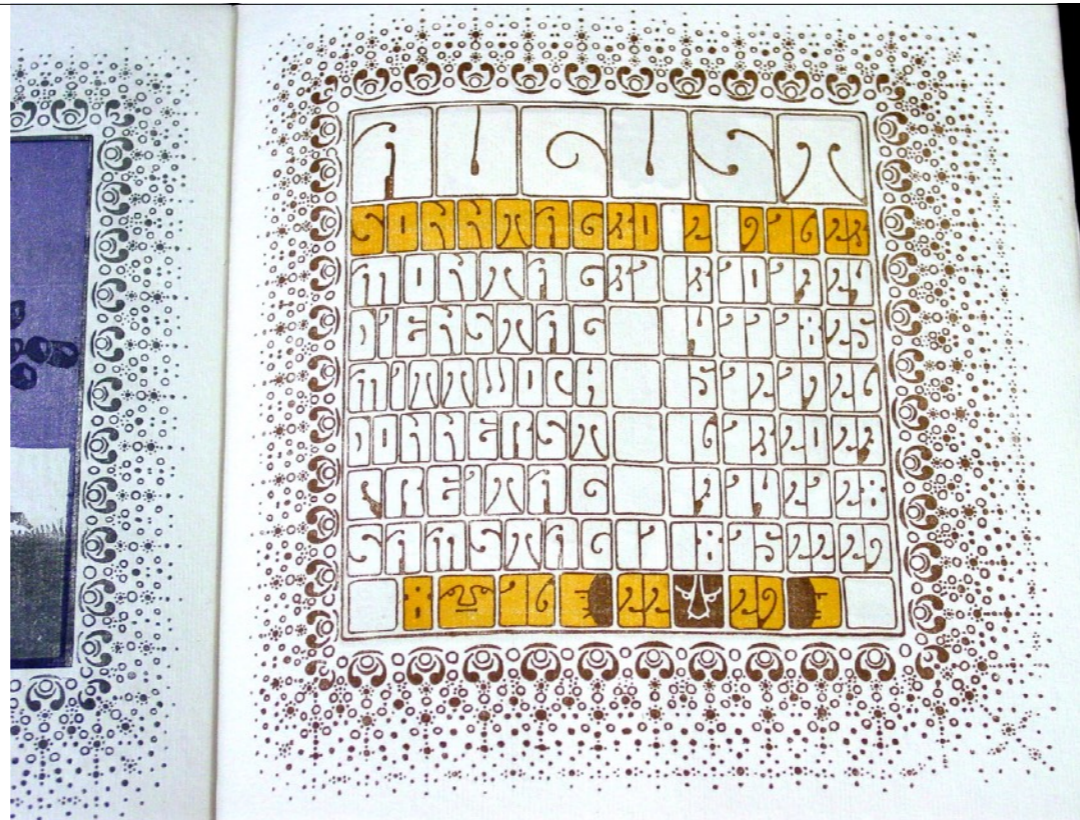 AUGUST
SONNTAG 30 2 9 16 23
MONTAG 31 3 10 17 24
DIENSTAG 4 11 18 25
MITTWOCH 5 12 19 26
DONNERST 6 13 20 27
FREITAG 7 14 21 28
SAMSTAG 1 8 15 22 29
8 16 22 29